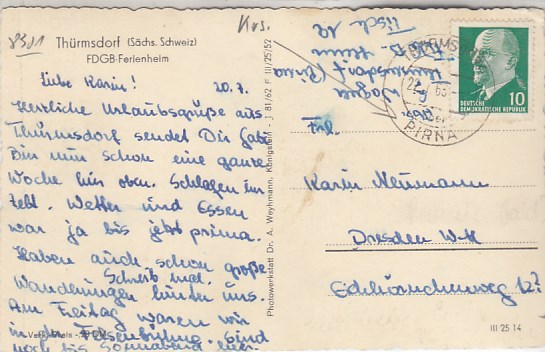 8381
Krs.
Thürmsdorf (Sächs. Schweiz)
FDGB-Ferienheim
20.7.
Liebe Karin!
Herzliche Urlaubsgrüße aus
Thürmsdorf sendet Dir Gabi
Bin nun schon eine ganze
Woche hier oben. Schlafen im
Zelt. Wetter und Essen
war ja bis jetzt prima.
Haben auch schon große
Schreib mal.
Wanderungen hinter uns.
Am Freitag waren wir
in der Felsenbühne. Sind
noch bis Sonnabend hier.
Photowerkstatt Dr. A. Weyhmann, Königstein - J 81/62 F III/25/52
Tisch 12
Thürmsdorf
Pirna
PIRNA
DEUTSCHE
DEMOKRATISCHE REPUBLIK
10
Frl.
Karin Neumann
Dresden
III 25 14